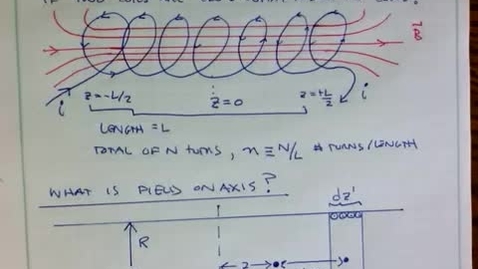 B
i
z = -L/2
z = 0
z = +L/2
i
LENGTH = L
TOTAL OF N TURNS, n ≡ N/L # TURNS/LENGTH
WHAT IS FIELD ON AXIS?
dz'
R
z